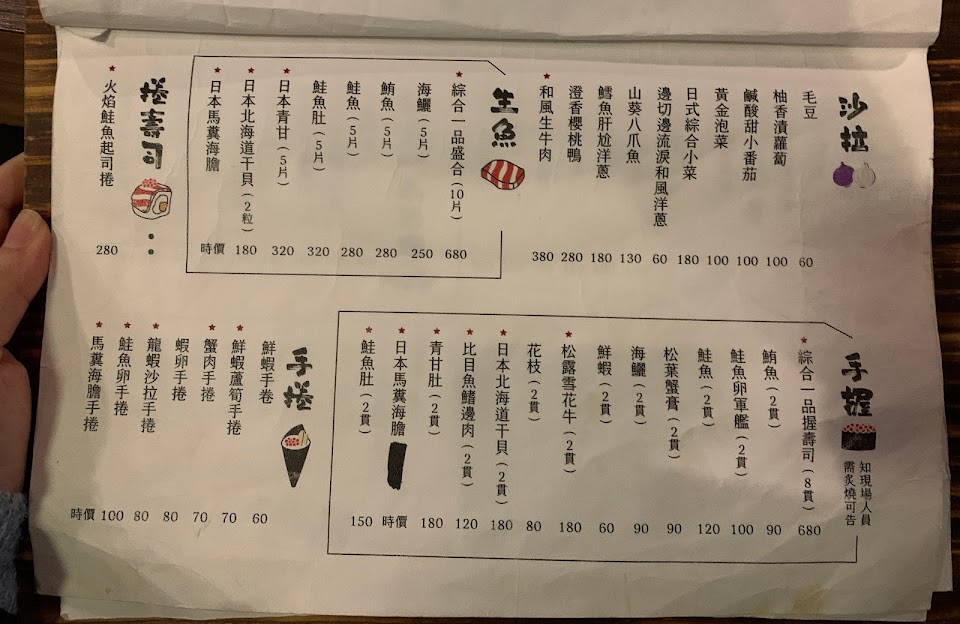 沙拉
毛豆 60
柚香漬蘿蔔 100
鹹酸甜小番茄 100
黃金泡菜 100
日式綜合小菜 180
邊切邊流淚和風洋蔥 60
山葵八爪魚 130
鱈魚肝尬洋蔥 180
澄香櫻桃鴨 280
★和風生牛肉 380
生魚
★綜合一品盛合(10片) 680
海鱺(5片) 250
鮪魚(5片) 280
鮭魚(5片) 280
鮭魚肚(5片) 320
★日本青甘(5片) 320
★日本北海道干貝(2粒) 180
★日本馬糞海膽 時價
捲壽司
★火焰鮭魚起司捲 280
手握
知現場人員
需炙燒可告
★綜合一品握壽司(8貫) 680
鮪魚(2貫) 90
鮭魚卵軍艦(2貫) 100
鮭魚(2貫) 120
松葉蟹膏(2貫) 90
海鱺(2貫) 90
鮮蝦(2貫) 60
★松露雪花牛(2貫) 180
花枝(2貫) 80
★日本北海道干貝(2貫) 180
★比目魚鰭邊肉(2貫) 120
★青甘肚(2貫) 180
★日本馬糞海膽 時價
★鮭魚肚(2貫) 150
手捲
鮮蝦手卷 60
★鮮蝦蘆筍手捲 70
★蟹肉手捲 70
蝦卵手捲 80
★龍蝦沙拉手捲 80
★鮭魚卵手捲 100
★馬糞海膽手捲 時價